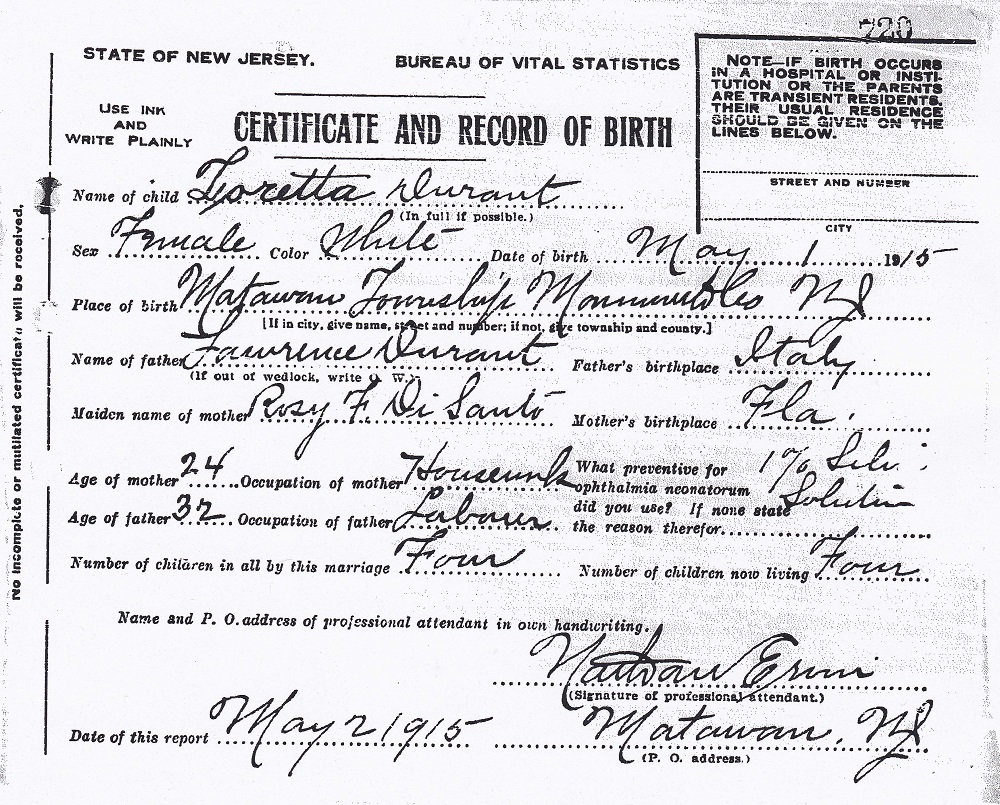 720
STATE OF NEW JERSEY. BUREAU OF VITAL STATISTICS
NOTE—IF BIRTH OCCURS
IN A HOSPITAL OR INSTI-
TUTION OR THE PARENTS
ARE TRANSIENT RESIDENTS,
THEIR USUAL RESIDENCE
SHOULD BE GIVEN ON THE
LINES BELOW.
STREET AND NUMBER
CITY
USE INK
AND
WRITE PLAINLY
CERTIFICATE AND RECORD OF BIRTH
Name of child Loretta Durant
(In full if possible.)
Sex Female Color White Date of birth May 1 1915
Place of birth Matawan Township Monmouth Co NJ
[If in city, give name, street and number; if not, give township and county.]
Name of father Lawrence Durant Father's birthplace Italy
(If out of wedlock, write O. W.)
Maiden name of mother Rosy F. Di Santo Mother's birthplace Fla.
Age of mother 24 Occupation of mother Housework What preventive for 1% Silv.
ophthalmia neonatorum Solution
did you use? If none state
Age of father 32 Occupation of father Laborer the reason therefor
Number of children in all by this marriage Four Number of children now living Four
Name and P. O. address of professional attendant in own handwriting.
Nathan
(Signature of professional attendant.)
Date of this report May 2 1915 Matawan, NJ
(P. O. address.)
No incomplete or mutilated certificate will be received.